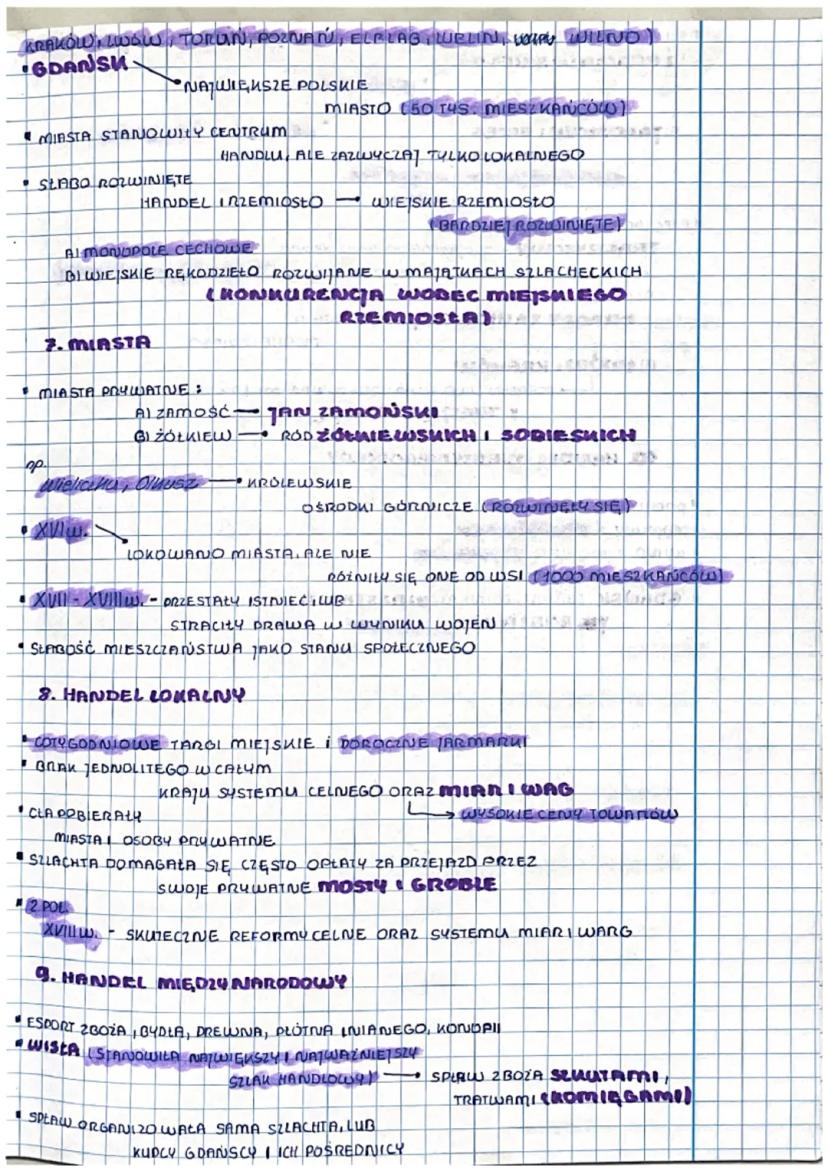 KRAKÓW, LWÓW, TORUŃ, POZNAŃ, ELBLĄG, LUBLIN, WILNO)
• GDAŃSK
• NAJWIĘKSZE POLSKIE
MIASTO (50 TYS. MIESZKAŃCÓW)
• MIASTA STANOWIŁY CENTRUM
HANDLU, ALE ZAZWYCZAJ TYLKO LOKALNEGO
• SŁABO ROZWINIĘTE
HANDEL I RZEMIOSŁO → WIEJSKIE RZEMIOSŁO
(BARDZIEJ ROZWINIĘTE)
A) MONOPOLE CECHOWE
B) WIEJSKIE RĘKODZIEŁO ROZWIJANE W MAJĄTKACH SZLACHECKICH
(KONKURENCJA WOBEC MIEJSKIEGO
RZEMIOSŁA)
7. MIASTA
• MIASTA PRYWATNE:
A) ZAMOŚĆ → JAN ZAMOŃSKI
B) ŻÓŁKIEW → RÓD ŻÓŁKIEWSKICH I SOBIESKICH
np.
Wieliczka, Olkusz → KRÓLEWSKIE
OŚRODKI GÓRNICZE (ROZWINĘŁY SIĘ)
• XVI w.
LOKOWANO MIASTA, ALE NIE
RÓŻNIŁY SIĘ ONE OD WSI (1000 MIESZKAŃCÓW)
• XVII - XVIII w. - PRZESTAŁY ISTNIEĆ LUB
STRACIŁY PRAWA W WYNIKU WOJEN
• SŁABOŚĆ MIESZCZAŃSTWA JAKO STANU SPOŁECZNEGO
8. HANDEL LOKALNY
• COTYGODNIOWE TARGI MIEJSKIE i DOROCZNE JARMARKI
• BRAK JEDNOLITEGO W CAŁYM
KRAJU SYSTEMU CELNEGO ORAZ MIAR I WAG
→ WYSOKIE CENY TOWARÓW
• CŁA POBIERAŁY
MIASTA I OSOBY PRYWATNE
• SZLACHTA DOMAGAŁA SIĘ CZĘSTO OPŁATY ZA PRZEJAZD PRZEZ
SWOJE PRYWATNE MOSTY I GROBLE
• 2 POŁ.
XVIII w. - SKUTECZNE REFORMY CELNE ORAZ SYSTEMU MIAR I WARG
9. HANDEL MIĘDZYNARODOWY
• ESPORT ZBOŻA, BYDŁA, DREWNA, PŁÓTNA LNIANEGO, KONOPII
• WISŁA (STANOWIŁA NAJWIĘKSZY I NAJWAŻNIEJSZY
SZLAK HANDLOWY) → SPŁAW ZBOŻA SZKUTAMI,
TRATWAMI (KOMIĘGAMI)
• SPŁAW ORGANIZOWAŁA SAMA SZLACHTA, LUB
KUPCY GDAŃSCY I ICH POŚREDNICY